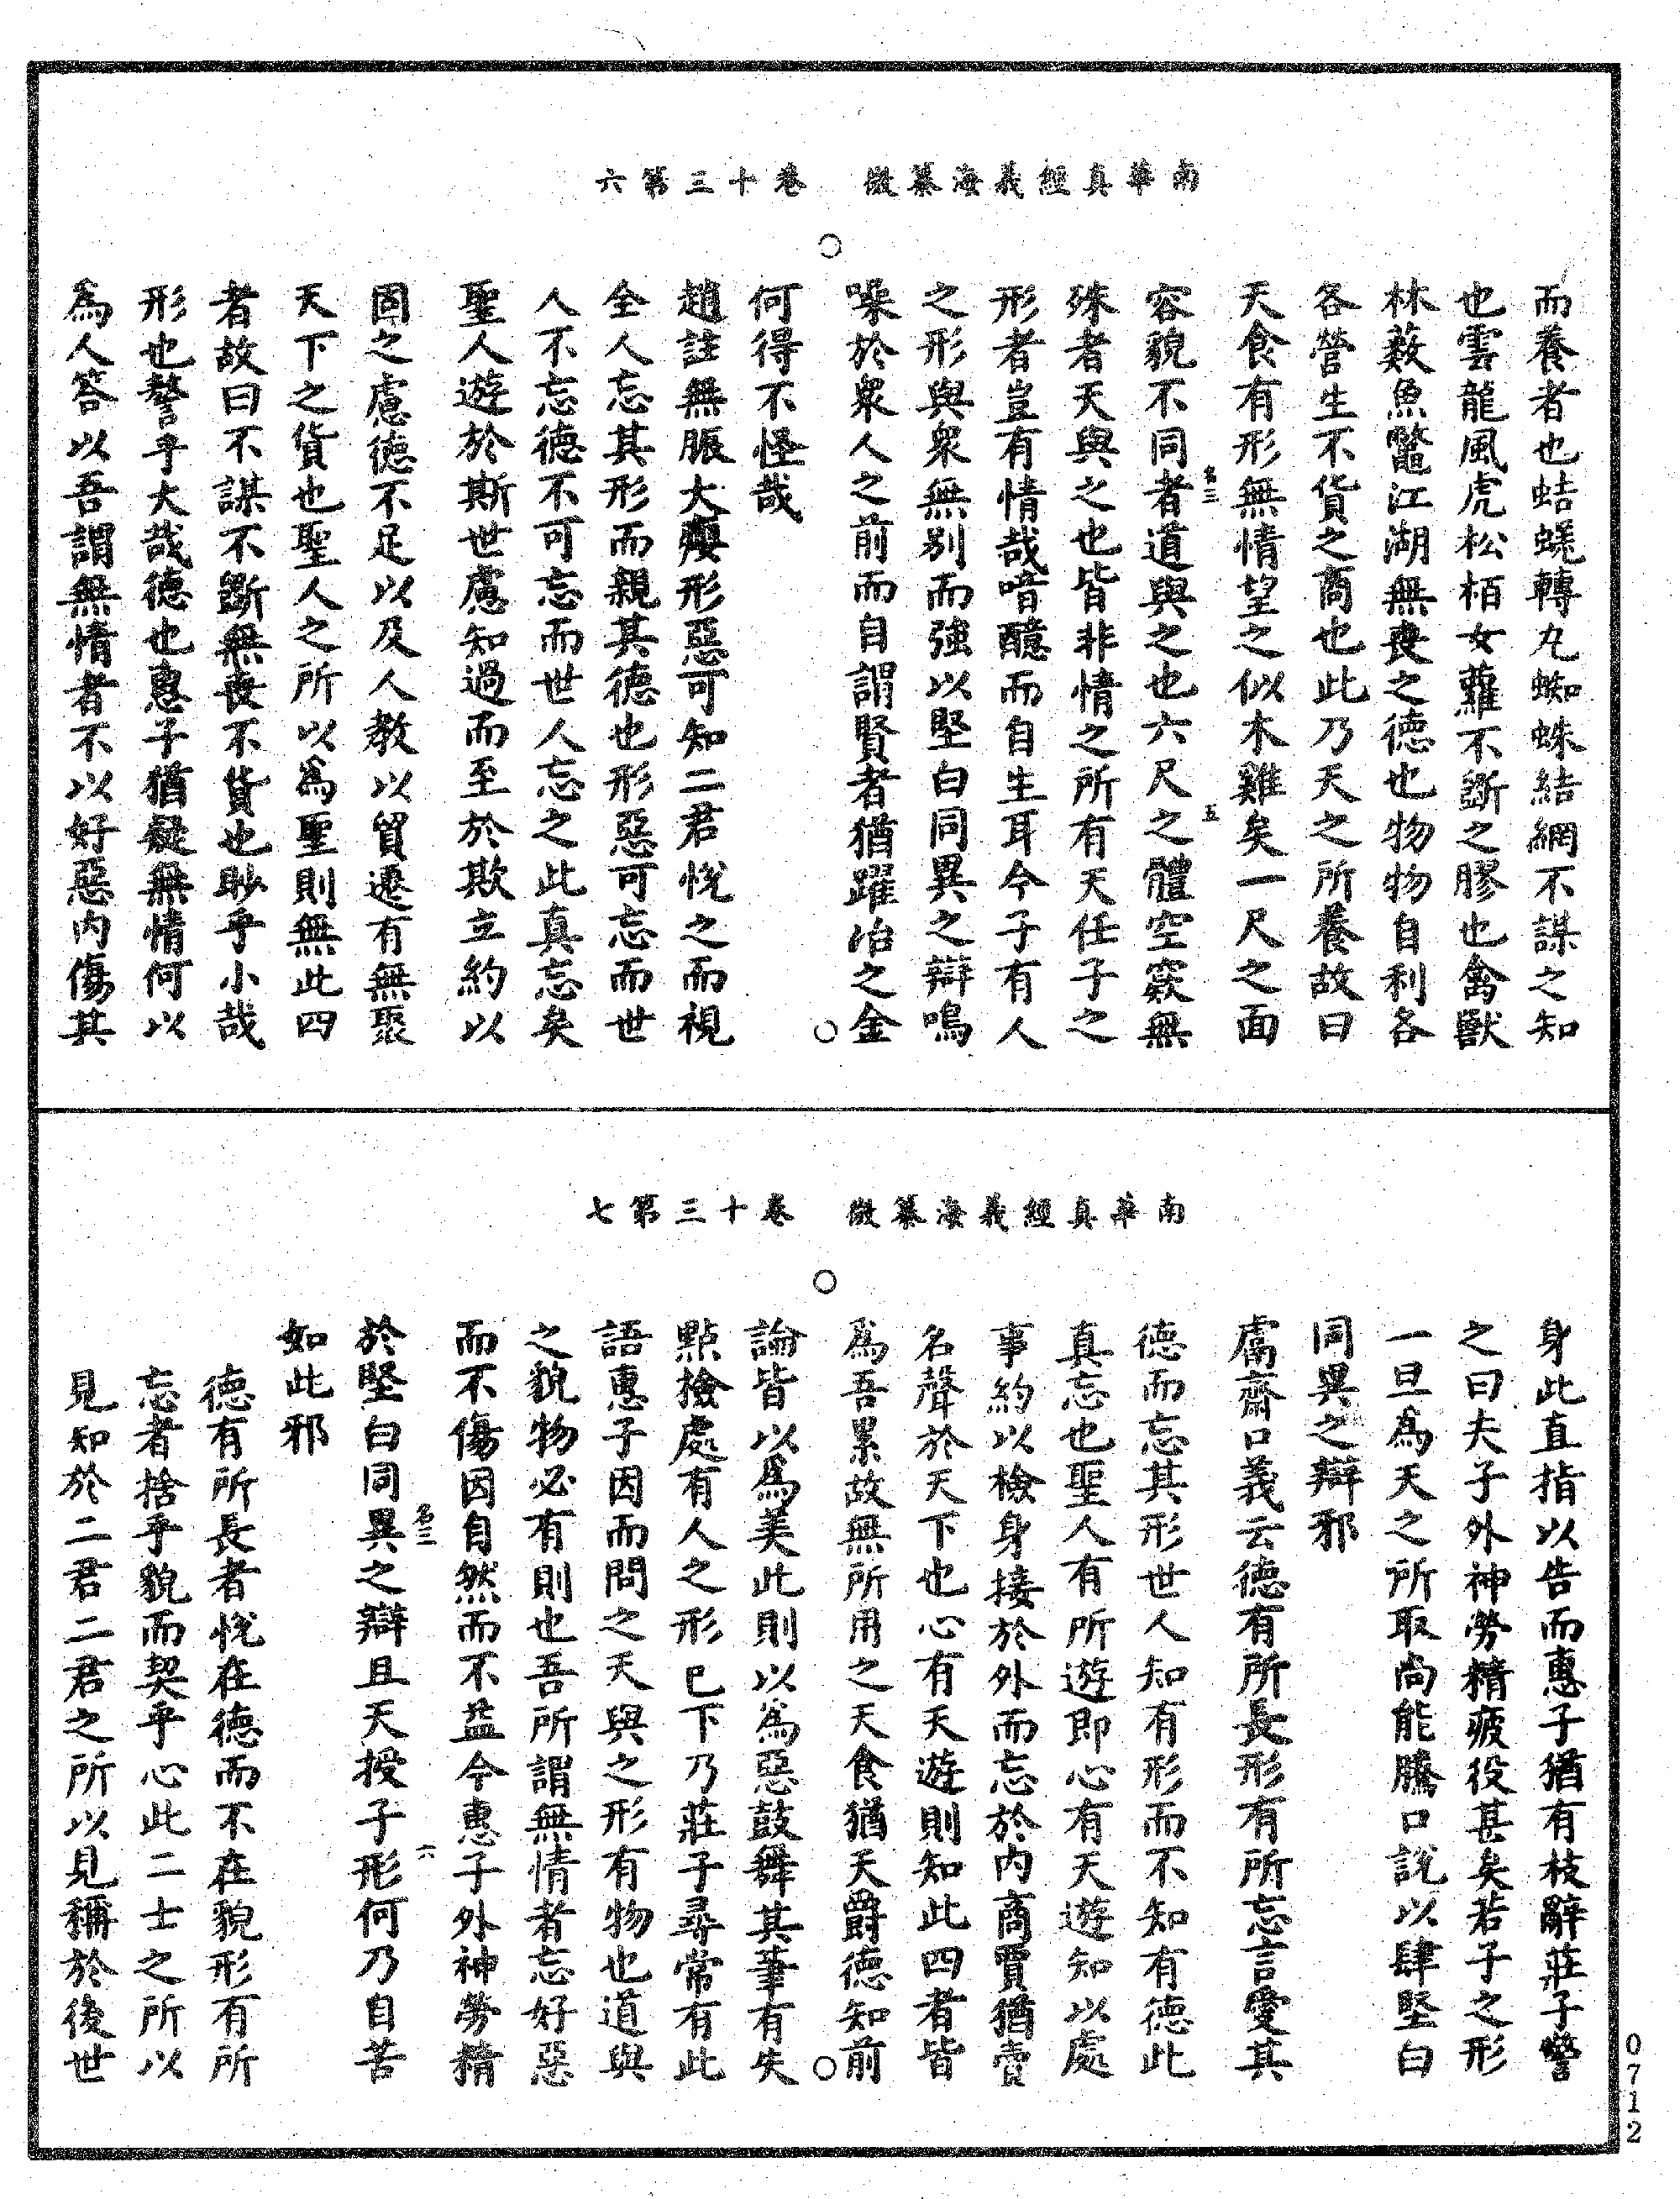 南華真經義海纂微　卷十三第六
而養者也蛣蜣轉丸蜘蛛結網不謀之知
也雲龍風虎松栢女蘿不斷之膠也禽獸
林藪魚鼈江湖無喪之德也物物自利各
各營生不貨之商也此乃天之所養故曰
天食有形無情望之似木雞矣一尺之面
容貌不同者道與之也六尺之體空竅無
名三　五
殊者天與之也皆非情之所有天任子之
形者豈有情哉喑醷而自生耳今子有人
之形與衆無別而強以堅白同異之辯鳴
噪於衆人之前而自謂賢者猶躍冶之金
何得不怪哉
趙註無脤大癭形惡可知二君悅之而視
全人忘其形而親其德也形惡可忘而世
人不忘德不可忘而世人忘之此真忘矣
聖人遊於斯世慮知過而至於欺立約以
固之慮德不足以及人教以貿遷有無聚
天下之貨也聖人之所以爲聖則無此四
者故曰不謀不斷無喪不貨也眇乎小哉
形也謷乎大哉德也惠子猶疑無情何以
爲人答以吾謂無情者不以好惡內傷其
南華真經義海纂微　卷十三第七
身此直指以告而惠子猶有枝辭莊子警
之曰夫子外神勞精疲役甚矣若子之形
一旦爲天之所取尚能騰口說以肆堅白
同異之辯邪
鬳齋口義云德有所長形有所忘言愛其
德而忘其形世人知有形而不知有德此
真忘也聖人有所遊即心有天遊知以處
事約以檢身接於外而忘於內商賈猶賣
名聲於天下也心有天遊則知此四者皆
爲吾累故無所用之天食猶天爵德知前
論皆以爲美此則以爲惡鼓舞其筆有失
點撿處有人之形已下乃莊子尋常有此
語惠子因而問之天與之形有物也道與
之貌物必有則也吾所謂無情者忘好惡
而不傷因自然而不益今惠子外神勞精
於堅白同異之辯且天授子形何乃自苦
名三　六
如此邪
德有所長者悅在德而不在貌形有所
忘者捨乎貌而契乎心此二士之所以
見知於二君二君之所以見稱於後世
0712